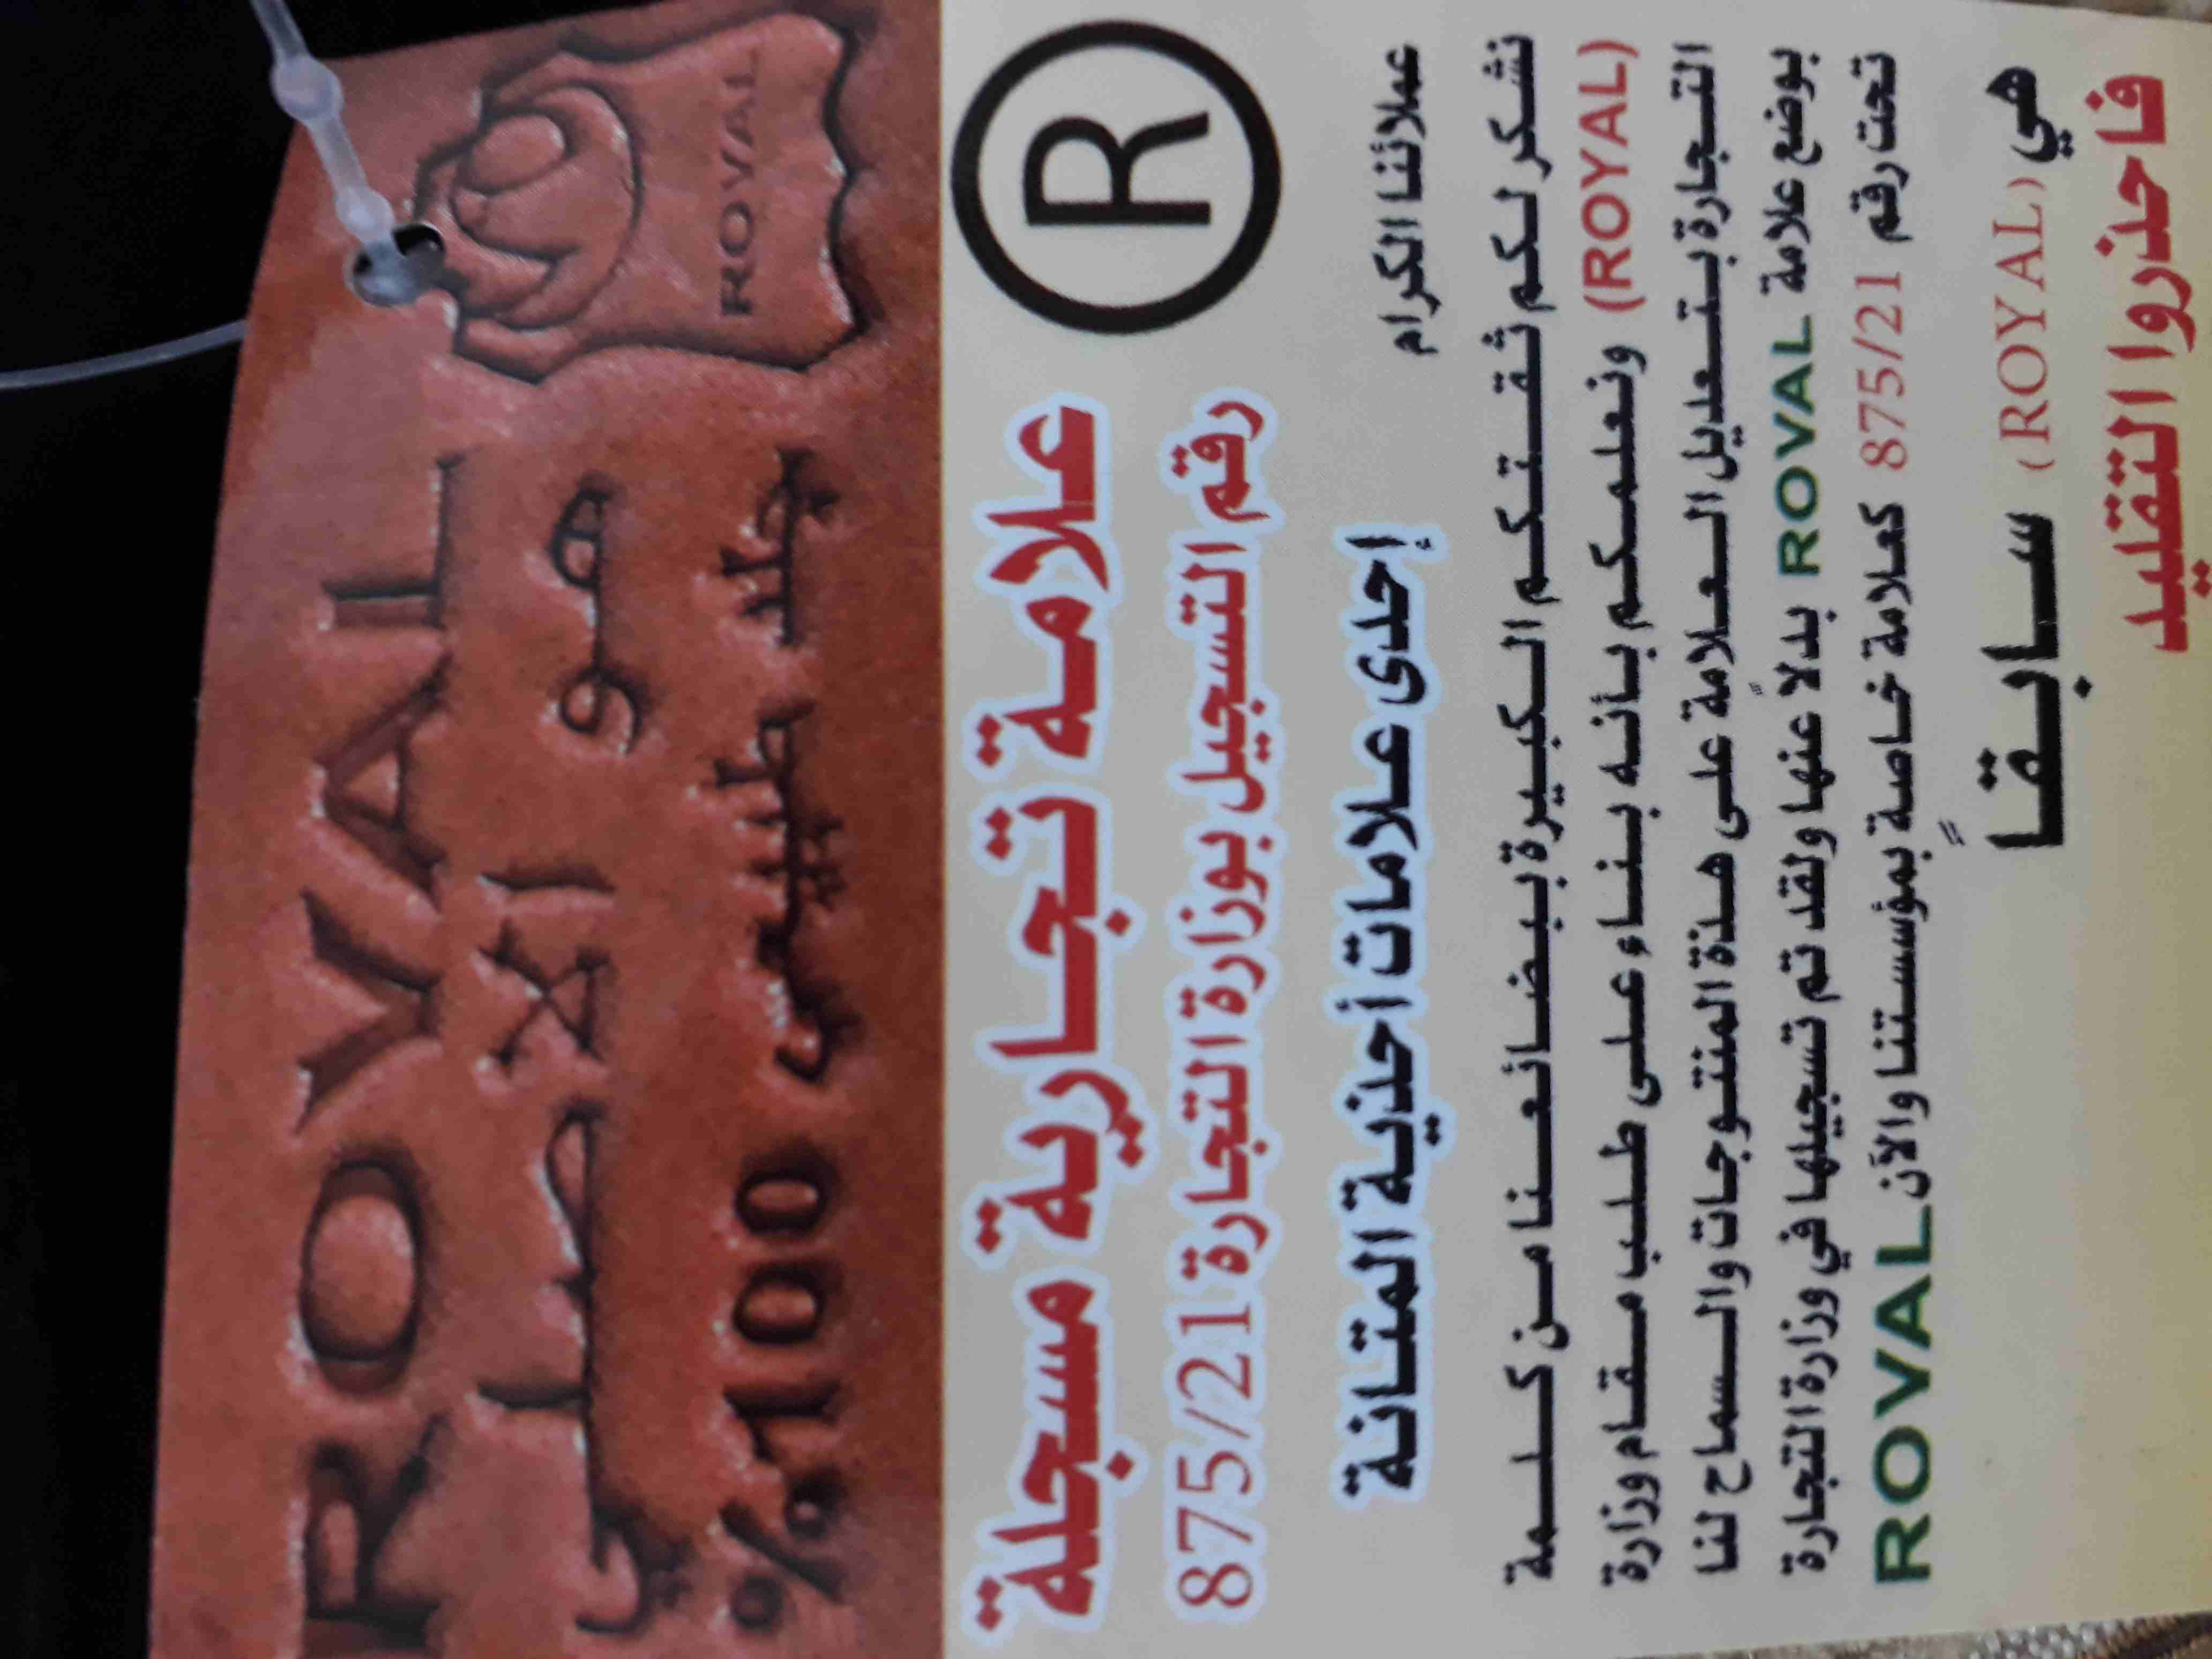 ROVAL
ROVAL
صمم
جلد طبيعي 100%
علامة تجارية مسجلة
رقم التسجيل بوزارة التجارة 875/21
R
إحدى علامات أحذية المتانة
عملائنا الكرام
نشكر لكم ثقتكم الكبيرة ببضائعنا من كلمة
(ROYAL) ونعلمكم بأنه بناء على طلب مقام وزارة
التجارة بتعديل العلامة على هذة المنتوجات والسماح لنا
بوضع علامة ROVAL بدلاً عنها ولقد تم تسجيلها في وزارة التجارة
تحت رقم 875/21 كعلامة خاصة بمؤسستنا والآن ROVAL
هي (ROYAL) سابقاً
فاحذروا التقليد